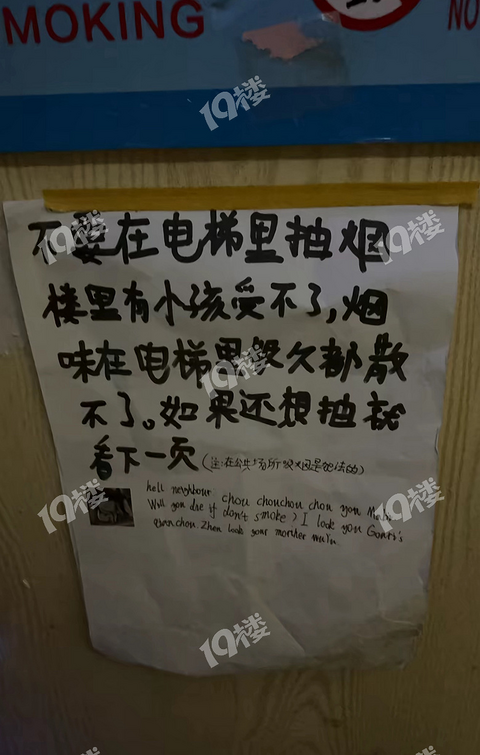 MOKING
NO
不要在电梯里抽烟
楼里有小孩受不了,烟
味在电梯里够久都散
不了。如果还想抽就
看下一页(注:在公共场所吸烟是犯法的)
hell neighbour chou chouchou chou you
Will you die if don't smoke? I look you
chou. Zhen look your
19楼